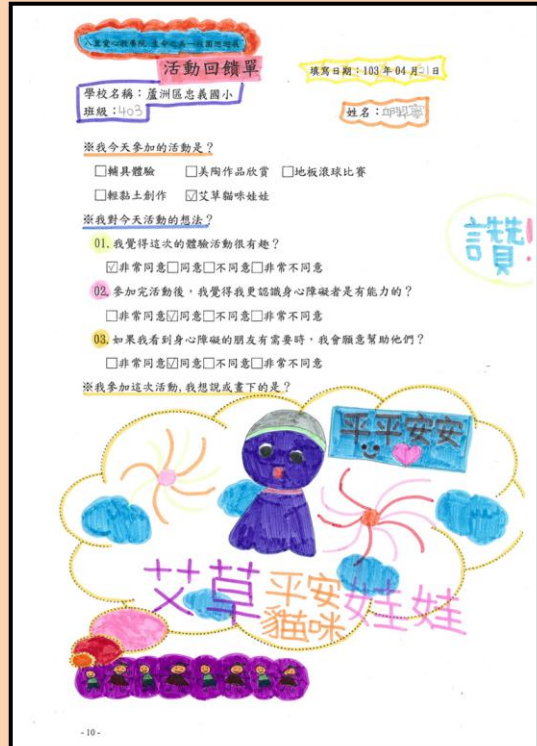 八里愛心教養院 生命之美—校園巡迴表
活動回饋單
填寫日期：103年04月21日
學校名稱：蘆洲區忠義國小
班級：403
姓名：
※我今天參加的活動是？
□輔具體驗 □美陶作品欣賞 □地板滾球比賽
□輕黏土創作 ☑艾草貓咪娃娃
※我對今天活動的想法？
01.我覺得這次的體驗活動很有趣？
☑非常同意□同意□不同意□非常不同意
讚!
02.參加完活動後，我覺得我更認識身心障礙者是有能力的？
□非常同意☑同意□不同意□非常不同意
03.如果我看到身心障礙的朋友有需要時，我會願意幫助他們？
□非常同意☑同意□不同意□非常不同意
※我參加這次活動,我想說或畫下的是？
平平安安
艾草平安貓咪娃娃
-10-